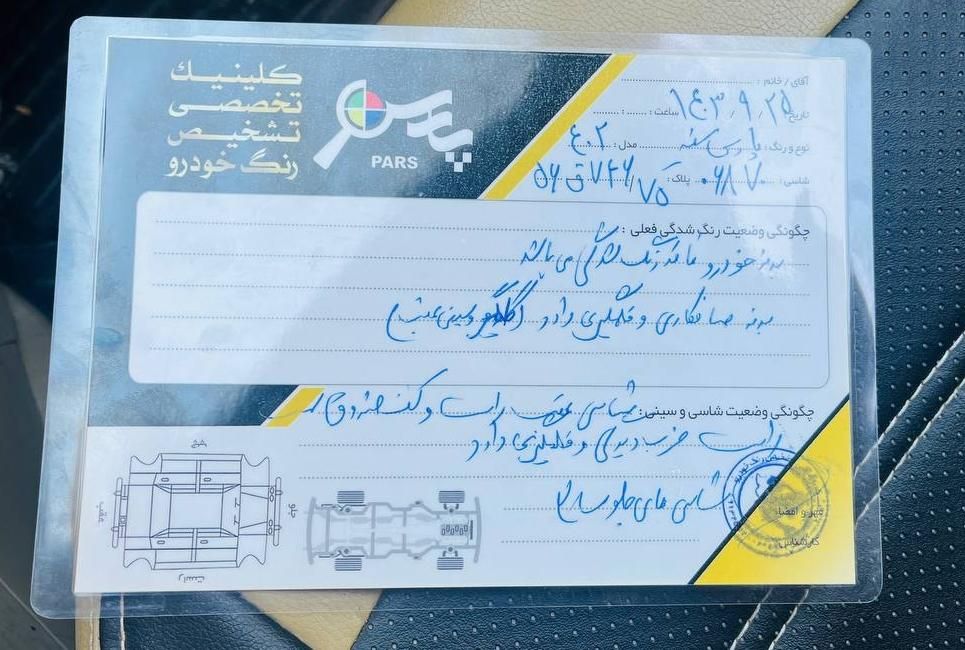 کلینیک
تخصصی
تشخیص
رنگ خودرو
پارس
PARS
آقای / خانم :
تاریخ ۱۴۰۳،۹،۲۵ ساعت :
نوع و رنگ : پارس سفید مدل : ۴۰۲
شاسی : ۰۶۸۷۰ پلاک : ۵۶ ق ۷۴۶/۷۵
چگونگی وضعیت رنگ شدگی فعلی :
بدنه خودرو فاقد رنگ شدگی می باشد
بدنه صافکاری و قلمگیری دارد ( گلگیر و سینی عقب )
چگونگی وضعیت شاسی و سینی : شاسی عقب راست و کف صندوق
راست ضرب دیدگی و قلمگیری دارد
شاسی های جلو سالم
مهر و امضاء
کارشناس
چپ
جلو
عقب
راست